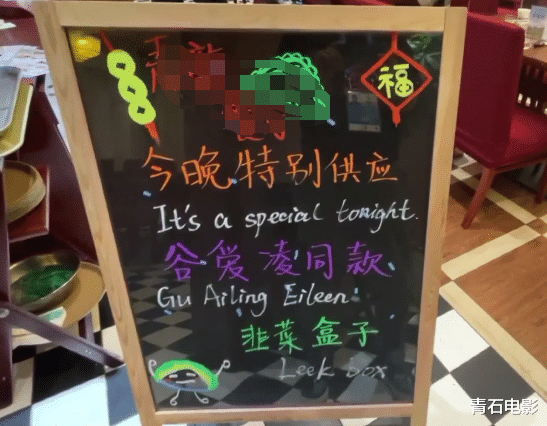 福
今晚特别供应
It's a special tonight.
谷爱凌同款
Gu Ailing Eileen
韭菜盒子
Leek box
青石电影